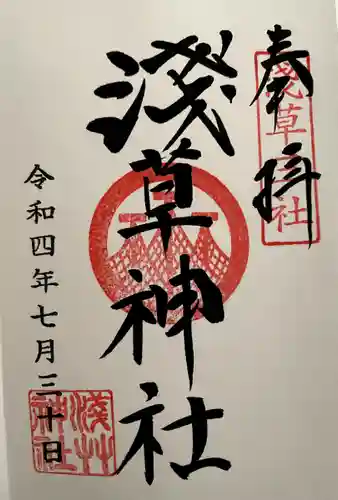 奉拝
淺草神社
淺草神社
令和四年七月三十日
淺艸神社